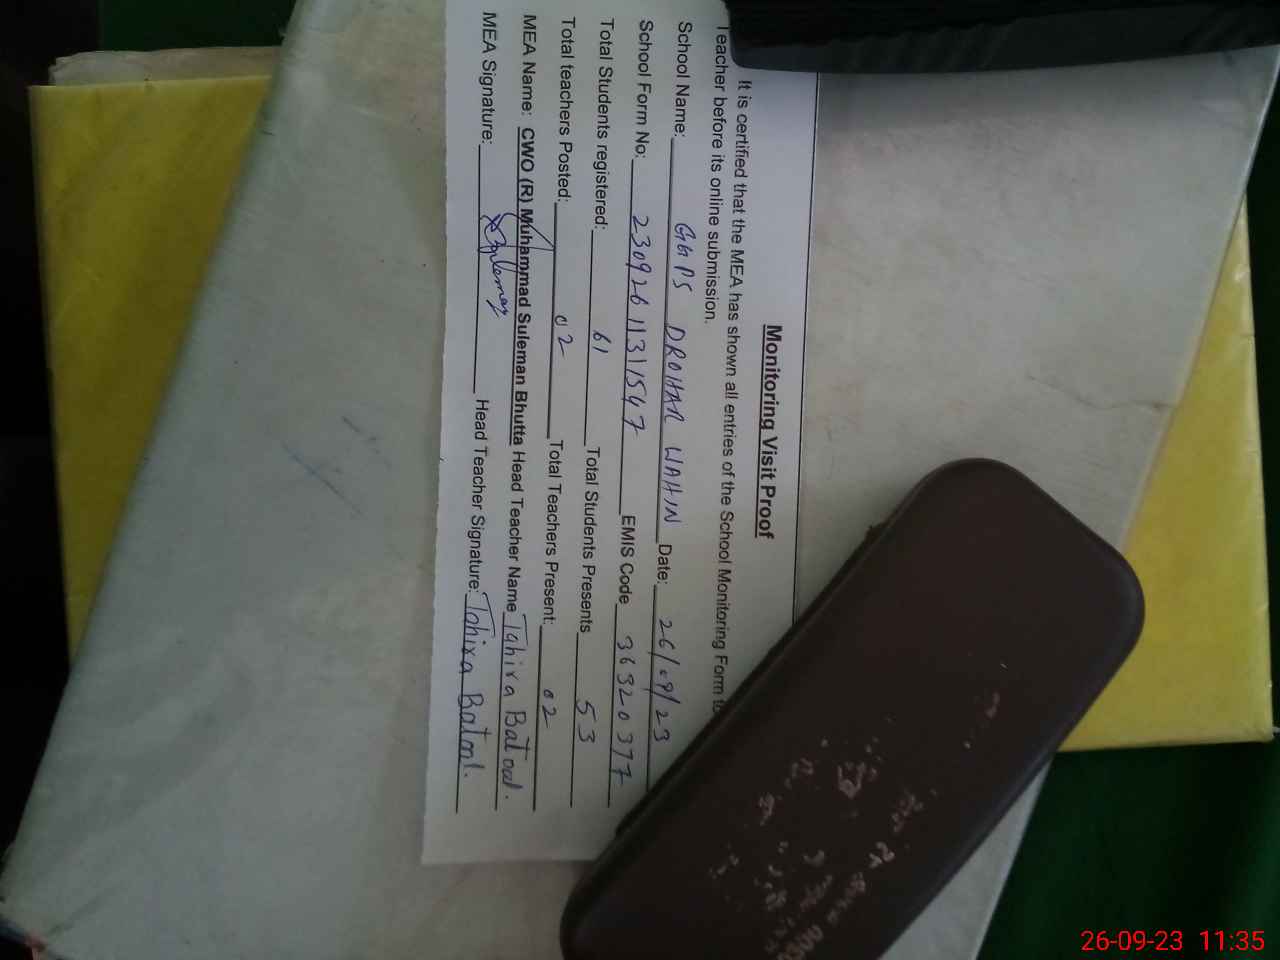 Monitoring Visit Proof
It is certified that the MEA has shown all entries of the School Monitoring Form to
Teacher before its online submission.
School Name: GGPS DROHAR WAHIN Date: 26/09/23
School Form No: 23092611311547 EMIS Code 36320377
Total Students registered: 61 Total Students Presents 53
Total teachers Posted: 02 Total Teachers Present: 02
MEA Name: CWO (R) Muhammad Suleman Bhutta Head Teacher Name Tahira Batool.
MEA Signature: Head Teacher Signature: Tahira Batool.
26-09-23 11:35